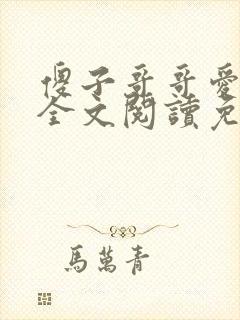 傻子哥哥愛
全文閱讀免
馬萬青